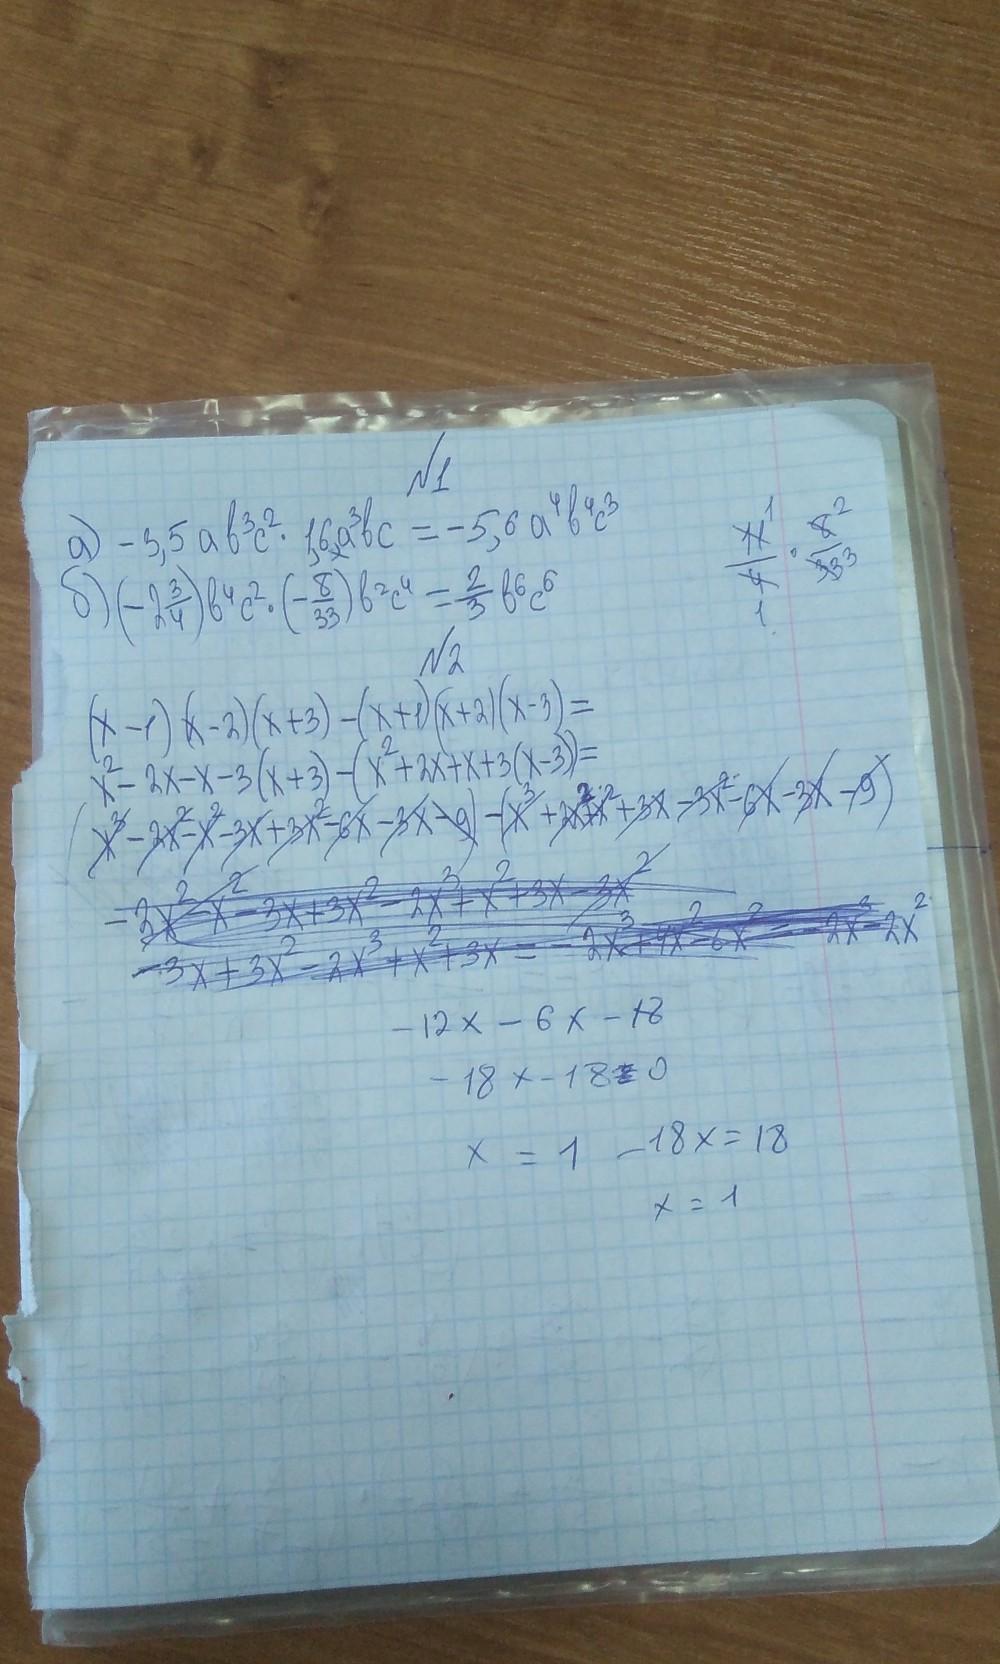 №1
а) -3,5 ab³c² · 1,6a³bc = -5,6 a⁴b⁴c³
11¹/4₁ · 8²/33₃
б) (-2 3/4)b⁴c² · (-8/33)b²c⁴ = 2/3 b⁶c⁶
№2
(x-1)(x-2)(x+3)-(x+1)(x+2)(x-3)=
x²-2x-x-3(x+3)-(x²+2x+x+3(x-3))=
(x³-2x²-x²-3x+3x²-6x-3x-9)-(x³+2x²+x²+3x-3x²-6x-3x-9)
-3x²-x²-3x+3x²-2x³+x²+3x-3x²
-3x+3x²-2x³+x²+3x=-2x³+4x²-6x²=-2x³-2x²
-12x-6x-18
-18x-18=0
x = 1 -18x=18
x = 1